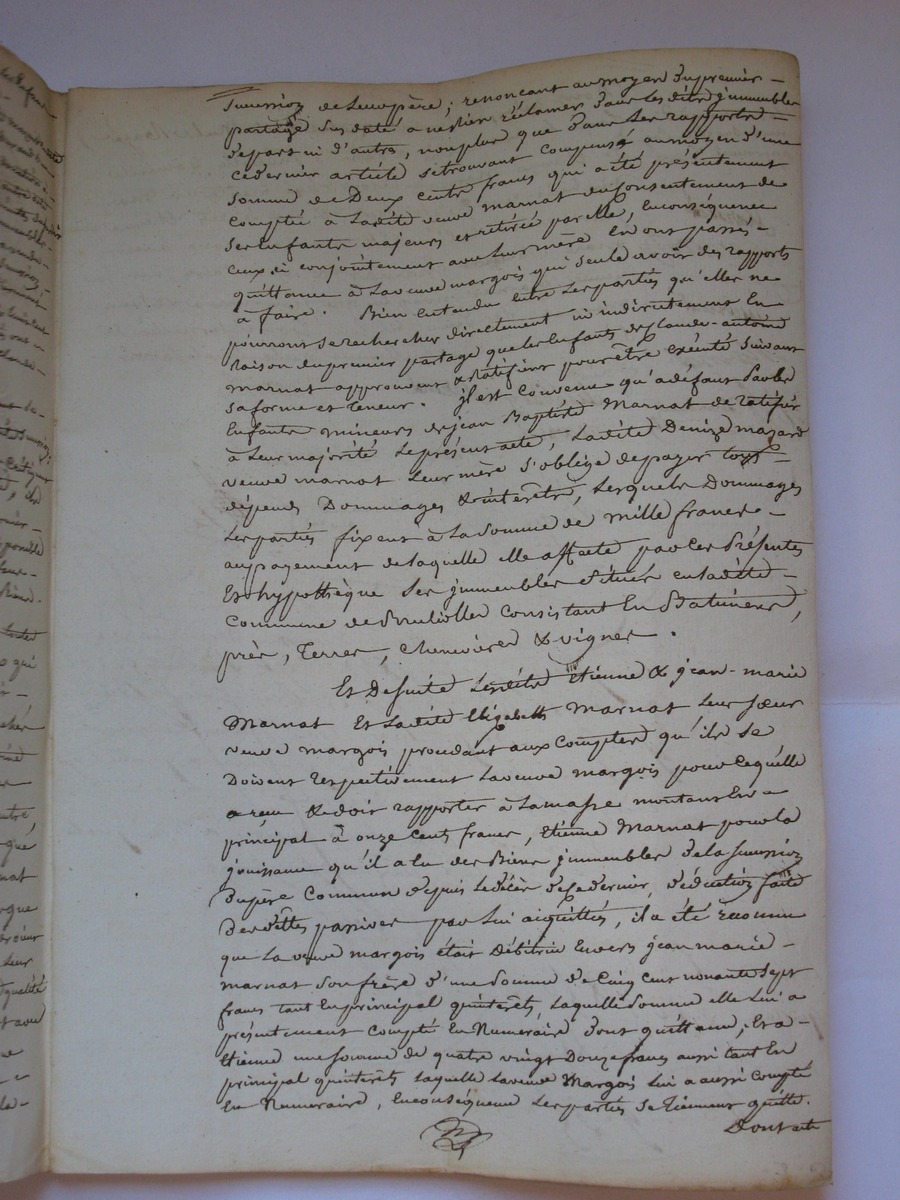 succession de leur père; renonçant au moyen du premier
partage sus daté à ne rien réclamer dans lesdits immeubles
de part ni d'autre, non plus que dans les rapports
ce dernier article se trouvant compensé au moyen d'une
somme de Deux cents francs qui a été présentement
comptée à ladite veuve marnat du consentement de
ses enfants majeurs et retirée par elle, en conséquence
ceux ci conjointement avec leur mère en ont passé
quittance à la veuve margois qui seule avoit des rapports
à faire. Bien entendu entre les parties qu'elles ne
pourront se rechercher directement ni indirectement en
raison du premier partage que les enfants de Claude-antoine
marnat approuvent & ratifient pour être exécuté suivant
sa forme et teneur. il est convenu qu'à défaut par les
enfants mineurs de jean Baptiste Marnat de ratifier
à leur majorité le présent acte, ladite Denize mazard
veuve marnat leur mère s'oblige de payer tous
dépends Dommages & intérêts, lesquels Dommages
les parties fixent à la somme de mille francs
au payement de laquelle elle affecte par ces présentes
et hypothèque ses immeubles situés en ladite
Commune de Consistant en Batiments,
près, Terres, chenevières & vignes.
Et de suite lesdits Etienne & jean-marie
Marnat et ladite Elizabeth Marnat leur sœur
veuve margois procédant aux comptes qu'ils se
doivent respectivement la veuve margois pour ce qu'elle
a reçu & doit rapporter à la masse montant en
principal à onze cents francs, Etienne Marnat pour la
jouissance qu'il a eu des Biens immeubles de la succession
du père commun depuis le décès de ce dernier, déduction faite
des dettes passives par lui acquittées, il a été reconnu
que la veuve margois était débitrice envers jean marie
marnat son frère d'une somme de cinq cent nonante sept
francs tant en principal qu'intérêts, laquelle somme elle lui a
présentement compté en Numéraire dont quittance, Et à
Etienne une somme de quatre vingt Douze francs aussi tant en
principal qu'intérêts laquelle la veuve Margois lui a aussi compté
en Numéraire, en conséquence les parties se tiennent quitte.
Dont acte